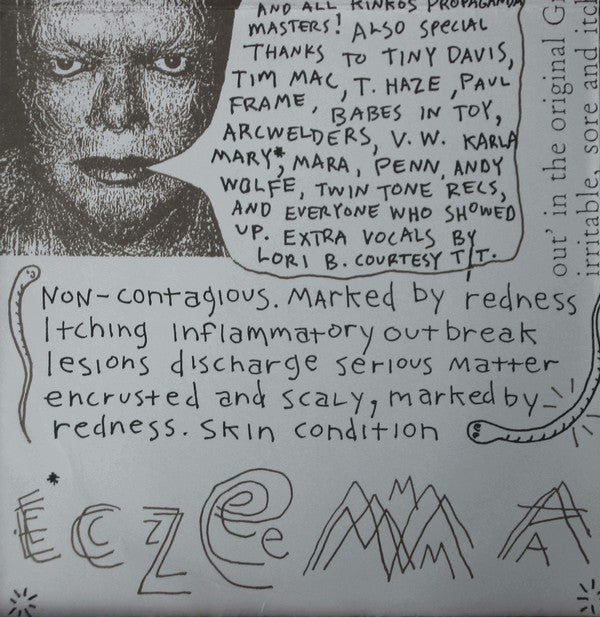 AND ALL KINKOS PROPAGANDA
MASTERS! ALSO SPECIAL
THANKS TO TINY DAVIS,
TIM MAC, T. HAZE, PAUL
FRAME, BABES IN TOY,
ARCWELDERS, V. W. KARLA
MARY*, MARA, PENN, ANDY
WOLFE, TWIN TONE RECS,
AND EVERYONE WHO SHOWED
UP. EXTRA VOCALS BY
LORI B. COURTESY T/T.
out' in the original G
irritable, sore and itc
NON-contagious. MArked by redness
Itching inflammatory outbreak
lesions discharge serious matter
encrusted and scaly, marked by
redness. Skin condition
*
EczeeMMA